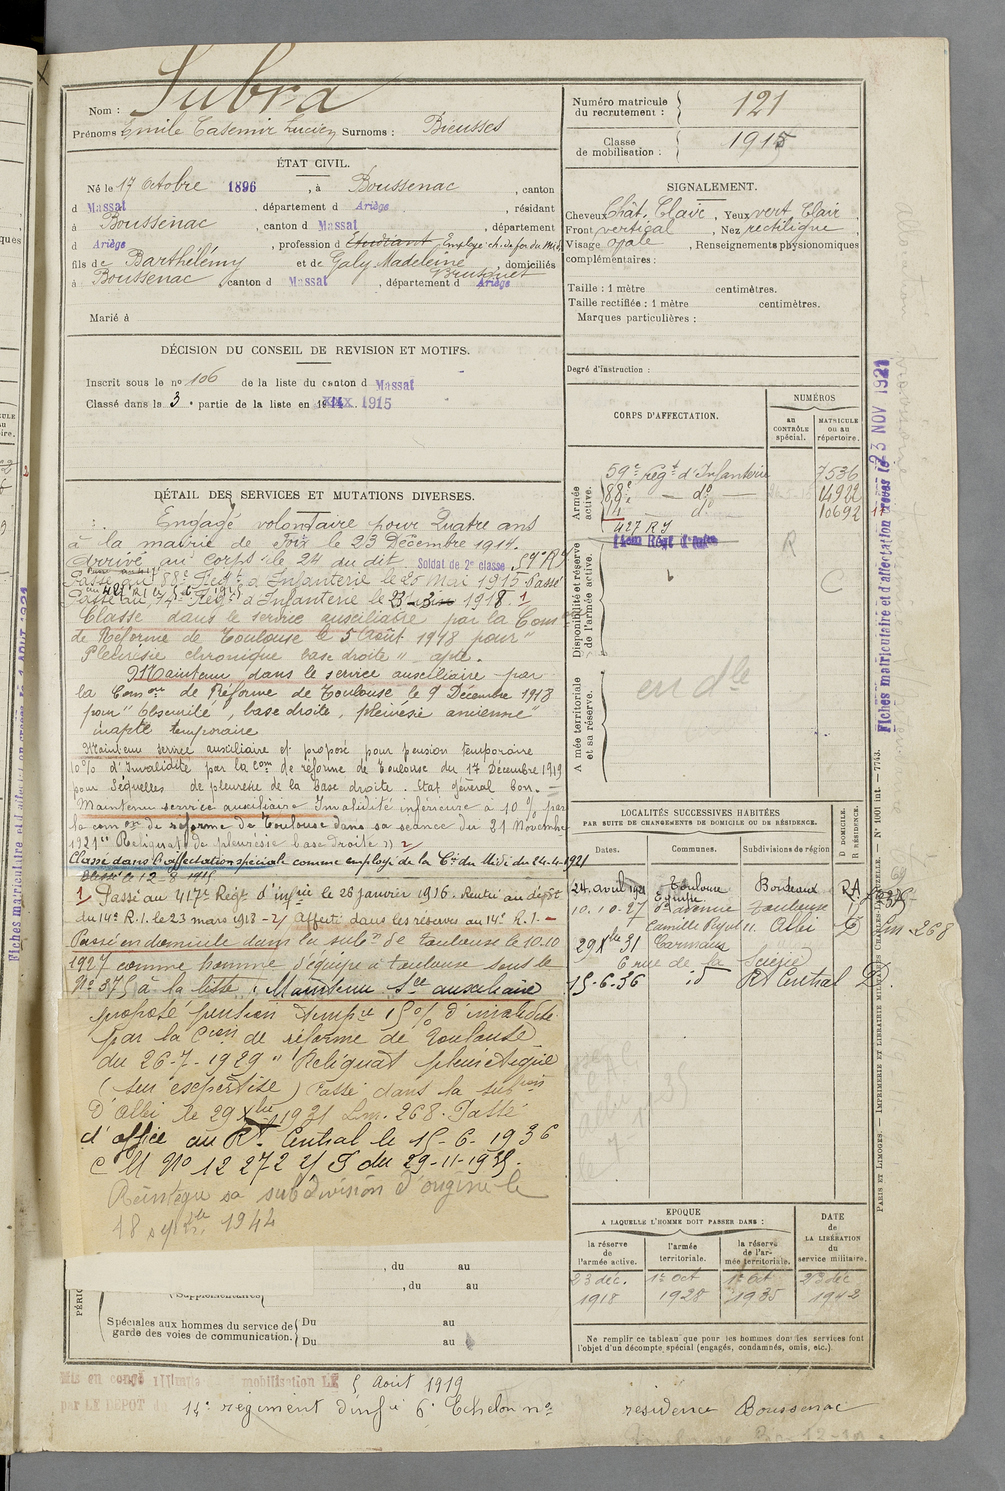 Nom : Subra
Prénoms Emile Casemir Lucien Surnoms : Bieusses
ÉTAT CIVIL.
Né le 17 Octobre 1896, à Boussenac, canton
d Massat, département d Ariège, résidant
à Boussenac, canton d Massat, département
d Ariège, profession d Etudiant Employé ch. de fer du Midi
fils de Barthélémy et de Galy Madeleine, domiciliés
Brusquet
à Boussenac canton d Massat, département d Ariège
Marié à
DÉCISION DU CONSEIL DE REVISION ET MOTIFS.
Inscrit sous le no 106 de la liste du canton d Massat
Classé dans la 3e partie de la liste en 1915
DÉTAIL DES SERVICES ET MUTATIONS DIVERSES.
Engagé volontaire pour Quatre ans
à la mairie de Foix le 23 Décembre 1914.
Arrivé au corps le 24 du dit. Soldat de 2e classe 59e RI
Passé au 88e Régt d'Infanterie le 20 Mai 1915 Passé
Passé au 14e Régt d'Infanterie le 23-3- 1918. 1
Classé dans le service auxiliaire par la Comon
de Réforme de Toulouse le 5 Août 1918 pour "
Pleurésie chronique base droite " apte.
Maintenu dans le service auxiliaire par
la Comon de Réforme de Toulouse le 9 Décembre 1918
pour " Obscurité, base droite, pleurésie ancienne "
inapte temporaire
Maintenu service auxiliaire et proposé pour pension temporaire
10% d'Invalidité par la Com de réforme de Toulouse du 17 Décembre 1919
pour séquelles de pleurésie de la base droite. Etat général bon. —
Maintenu service auxiliaire Invalidité inférieure à 10% par
la comon de réforme de Toulouse dans sa séance du 21 Novembre
1921 " Reliquat de pleurésie base droite " 2/
Classé dans l'affectation spéciale comme employé de la Cie du Midi du 24.4.1921
Blessé le 12-8-1915
1/ Passé au 417e Régt d'infrie le 26 janvier 1916. Rentré au dépôt
du 14e R.I. le 23 mars 1918 – 2/ Affecté dans les réserves au 14e R.I. –
Passé en domicile dans la subon de Toulouse le 10.10
1927 comme homme d'équipe à Toulouse sous le
No 375 à la liste : Maintenu Sce auxiliaire
proposé pension tempre 15% d'invalidité
par la Cion de réforme de Toulouse
du 26-7-1929 " Reliquat pleurétique
(sur expertise) Passé dans la subon
D'Albi le 29 Xbre 1931 Lm. 268. Passé
d'office au Rt Central le 15-6-1936
C M No 12 272 2/S du 29-11-1935.
Réintègre sa subdivision d'origine le
18 septbre 1942
, du au
, du au
Spéciales aux hommes du service de garde des voies de communication.
Du au
Du au
Mis en congé illimité mobilisation LE 5 Août 1919
par LE DEPOT du 14e régiment d'infie 6e Echelon no résidence Boussenac
Numéro matricule du recrutement : 121
Classe de mobilisation : 1915
SIGNALEMENT.
Cheveux Chât. Clair, Yeux vert Clair,
Front vertical, Nez rectiligne,
Visage ovale, Renseignements physionomiques
complémentaires :
Taille : 1 mètre centimètres.
Taille rectifiée : 1 mètre centimètres.
Marques particulières :
Degré d'instruction :
CORPS D'AFFECTATION.
NUMÉROS
au CONTRÔLE spécial.
MATRICULE ou au répertoire.
Armée active.
59e régt d'Infanterie 7536
88e — do — 14922
14 — do — 10692
417 R I
14em Régt d'Infie
R C
Disponibilité et réserve de l'armée active.
Armée territoriale et sa réserve.
en dle
LOCALITÉS SUCCESSIVES HABITÉES
PAR SUITE DE CHANGEMENTS DE DOMICILE OU DE RÉSIDENCE.
Dates. Communes. Subdivisions de région D DOMICILE. R RÉSIDENCE.
24 avril 1921 Toulouse Bordeaux RA
10.10-27 Toulouse
Camille Pujol 11. Albi D Lm-268
29 Xbre 31 Carmaux
6 rue de la Scierie
15-6-36 id Rt Central D.
EPOQUE
A LAQUELLE L'HOMME DOIT PASSER DANS :
DATE de LA LIBÉRATION du service militaire.
la réserve de l'armée active. l'armée territoriale. la réserve de l'armée territoriale.
23 déc. 1918
1er Oct 1928
1er Oct 1935
23 déc 1942
Ne remplir ce tableau que pour les hommes dont les services font
l'objet d'un décompte spécial (engagés, condamnés, omis, etc.).
Fiches matriculaire et d'affectation créées le 23 NOV 1921
PARIS ET LIMOGES. — IMPRIMERIE ET LIBRAIRIE MILITAIRES CHARLES-LAVAUZELLE. — No 1001 int. — 7743.